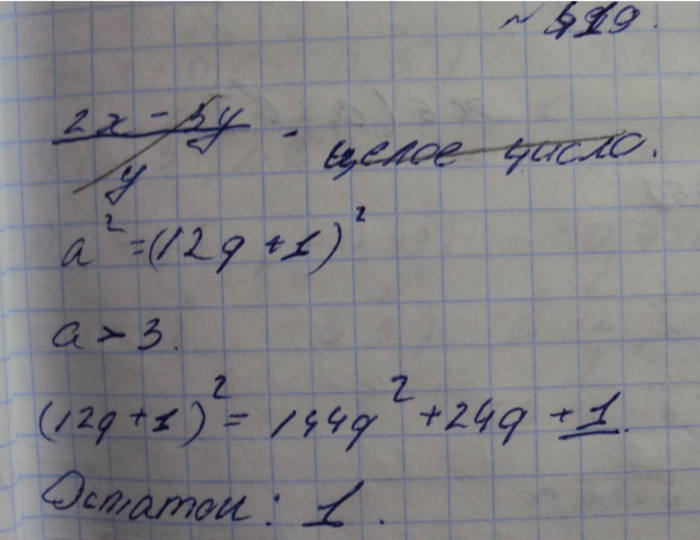 № 519.
(2x - 5y)/y - целое число.
a² = (12q + 1)²
a > 3.
(12q + 1)² = 144q² + 24q + 1.
Остаток: 1.